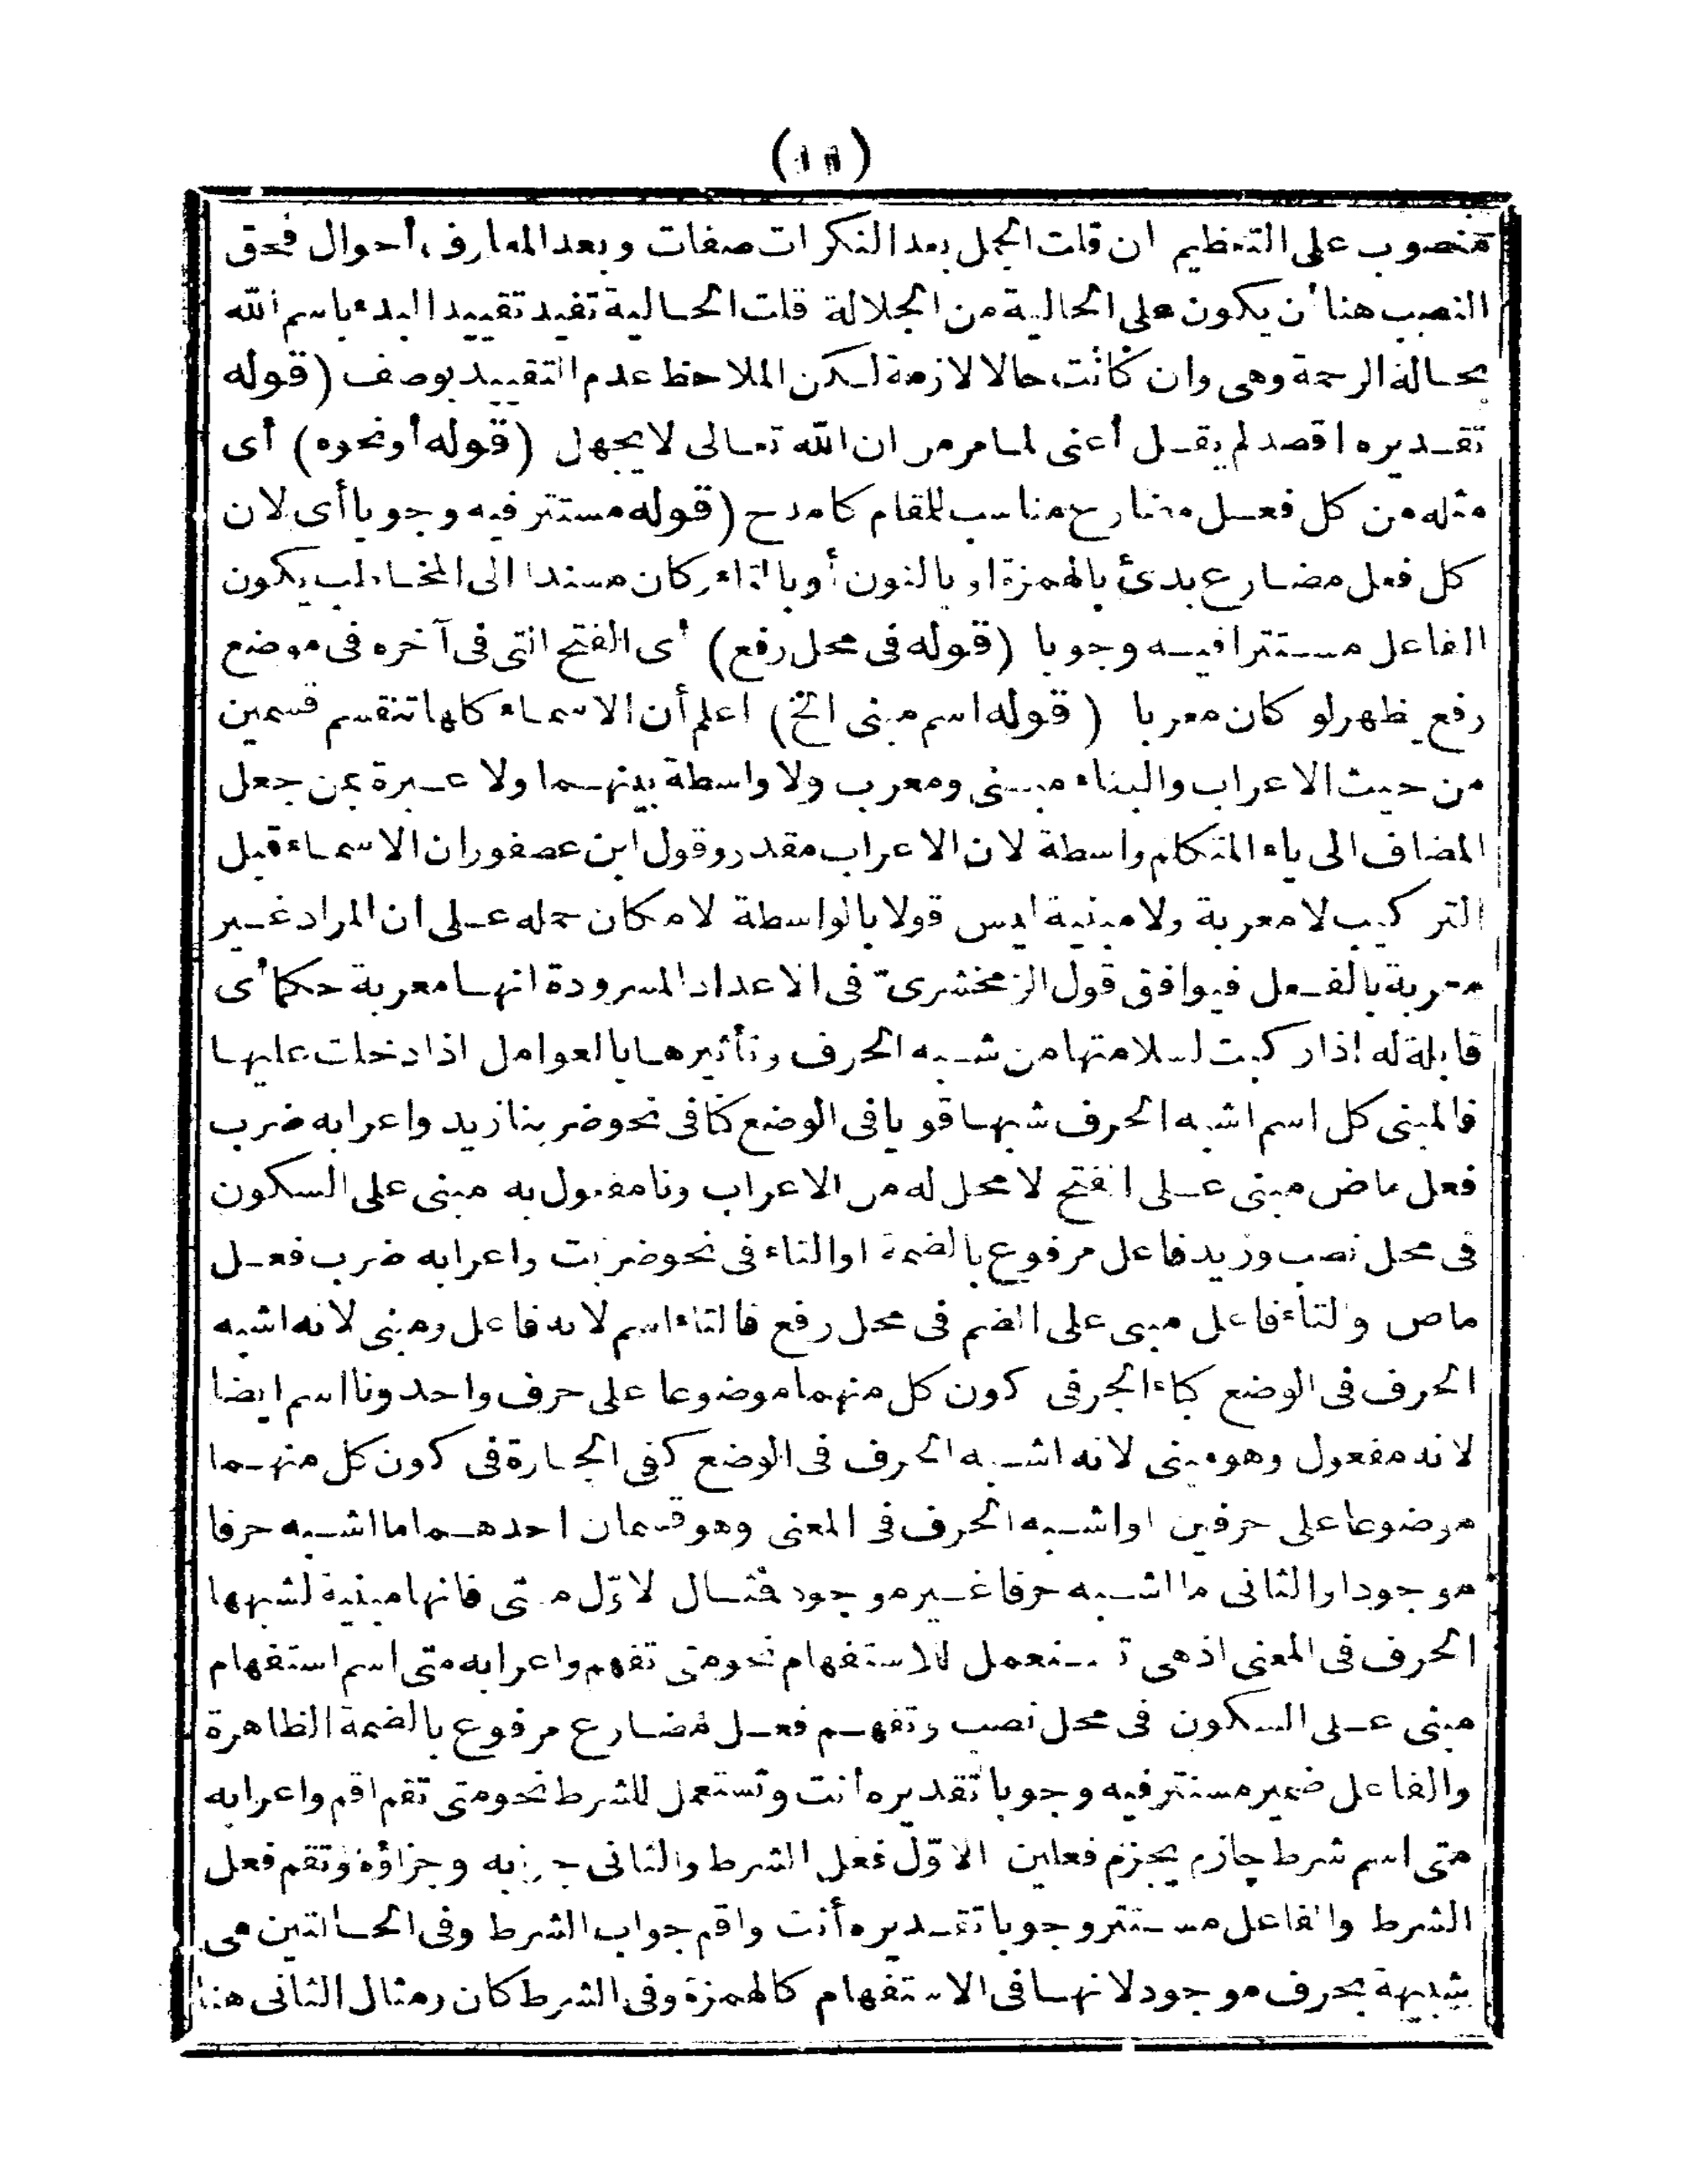 (١١)
منصوب على التعظيم ان قلت الجمل بعد النكرات صفات وبعد المعارف أحوال فحق
النصب هنا أن يكون على الحالية من الجلالة قلت الحالية تفيد تقييد البدء باسم الله
بحالة الرحمة وهى وان كانت حالا لازمة لكن الملاحظ عدم التقييد بوصف (قوله
تقديره اقصد لم يقل أعنى لما مر من ان الله تعالى لا يجهل (قوله أونحوه) أى
مثله من كل فعل مضارع مناسب للمقام كامدح (قوله مستتر فيه وجوبا أى لان
كل فعل مضارع بدئ بالهمزة او بالنون أو بالتاء وكان مسندا الى المخاطب يكون
الفاعل مستترا فيه وجوبا (قوله فى محل رفع) أى الفتح التى فى آخره فى موضع
رفع يظهر لو كان معربا (قوله اسم مبنى الخ) اعلم أن الاسماء كلها تنقسم قسمين
من حيث الاعراب والبناء مبنى ومعرب ولا واسطة بينهما ولا عبرة بمن جعل
المضاف الى ياء المتكلم واسطة لان الاعراب مقدر وقول ابن عصفور ان الاسماء قبل
التركيب لا معربة ولا مبنية ليس قولا بالواسطة لامكان حمله على ان المراد غير
معربة بالفعل فيوافق قول الزمخشرىّ فى الاعداد المسرودة انها معربة حكما أى
قابلة له اذا ركبت لسلامتها من شبه الحرف وتأثيرها بالعوامل اذا دخلت عليها
فالمبنى كل اسم اشبه الحرف شبها قويا فى الوضع كنا فى نحو ضربنا زيد واعرابه ضرب
فعل ماض مبنى على الفتح لا محل له من الاعراب ونا مفعول به مبنى على السكون
فى محل نصب وزيد فاعل مرفوع بالضمة او التاء فى نحو ضربت واعرابه ضرب فعل
ماض والتاء فاعل مبنى على الضم فى محل رفع فالتاء اسم لانه فاعل ومبنى لانه اشبه
الحرف فى الوضع كباء الجر فى كون كل منهما موضوعا على حرف واحد ونا اسم ايضا
لانه مفعول وهو مبنى لانه اشبه الحرف فى الوضع كفى الجارة فى كون كل منهما
موضوعا على حرفين او اشبه الحرف فى المعنى وهو قسمان احدهما ما اشبه حرفا
موجودا والثانى ما اشبه حرفا غير موجود فثال لاوّل متى فانها مبنية لشبهها
الحرف فى المعنى اذ هى تستعمل للاستفهام نحو متى تفهم واعرابه متى اسم استفهام
مبنى على السكون فى محل نصب وتفهم فعل مضارع مرفوع بالضمة الظاهرة
والفاعل ضمير مستتر فيه وجوبا تقديره أنت وتستعمل للشرط نحو متى تقم اقم واعرابه
متى اسم شرط جازم يجزم فعلين الاوّل فعل الشرط والثانى جوابه وجزاؤه وتقم فعل
الشرط والفاعل مستتر وجوبا تقديره أنت واقم جواب الشرط وفى الحالتين هى
شبيهة بحرف موجود لانها فى الاستفهام كالهمزة وفى الشرط كان ومثال الثانى هنا